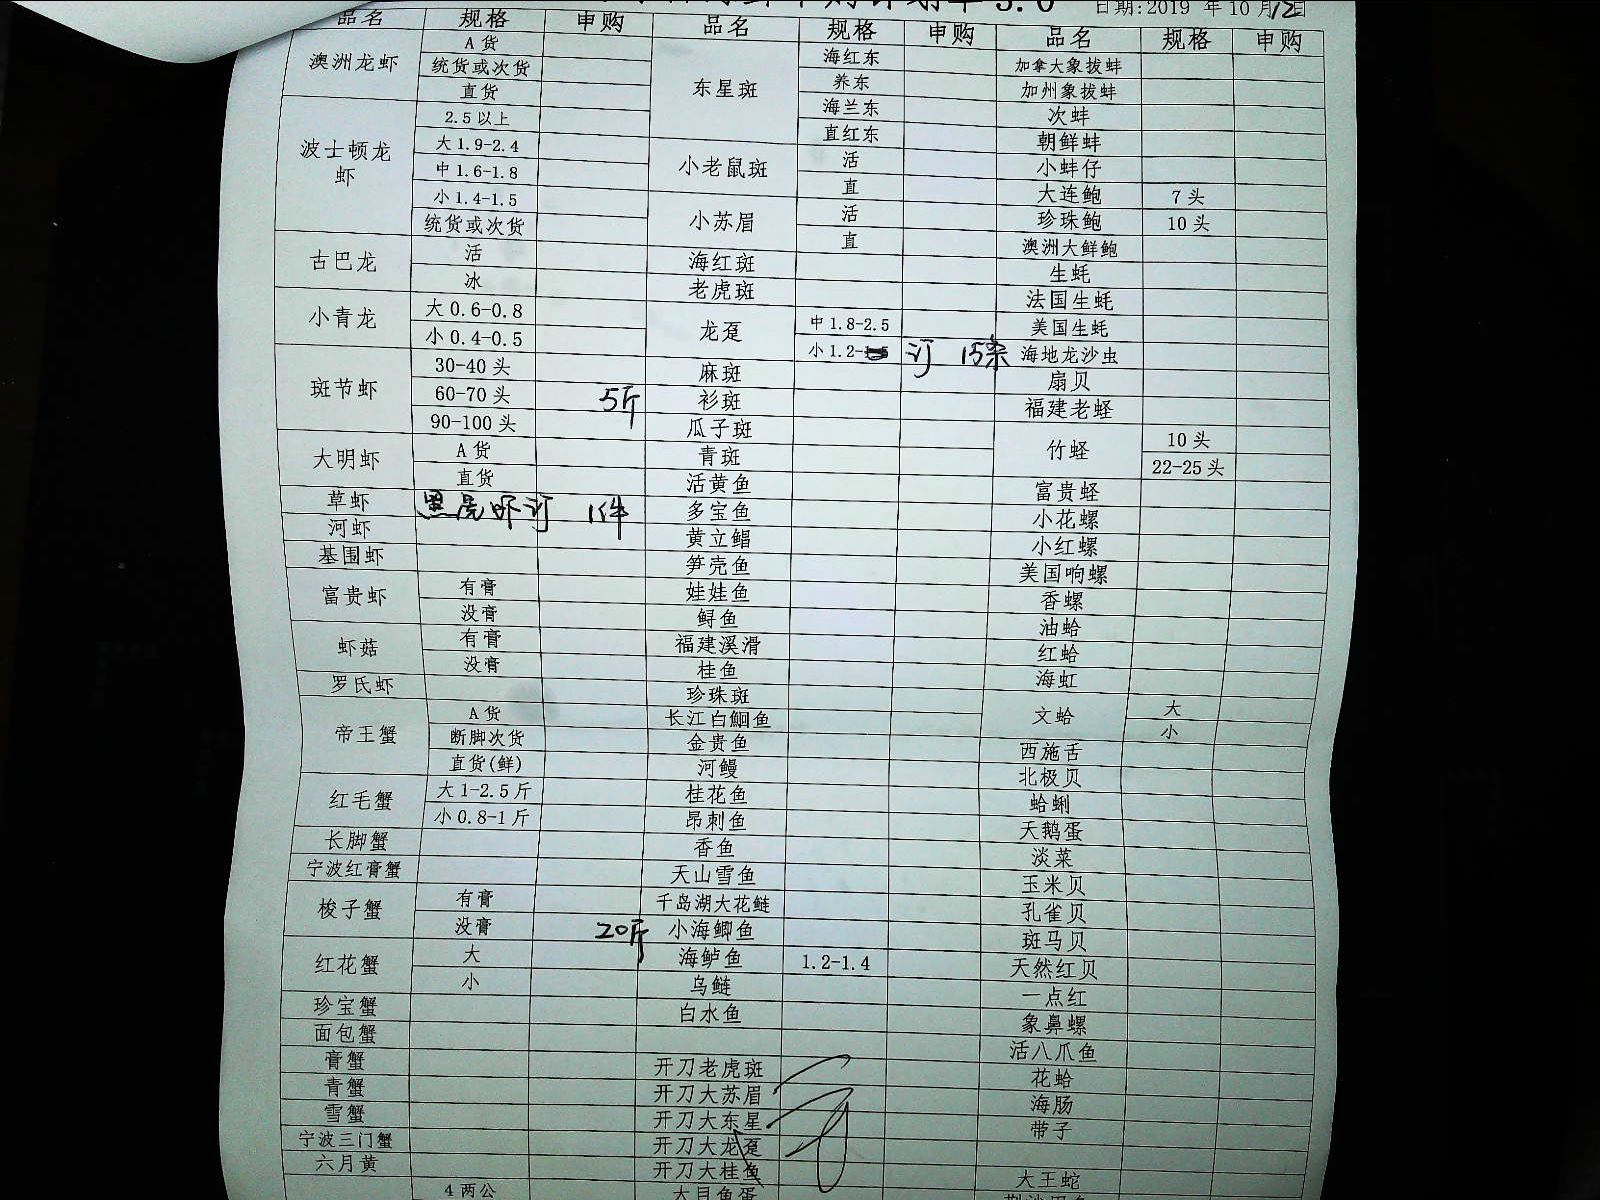 日期:2019 年 10 月 12 日
品名 规格 申购 品名 规格 申购 品名 规格 申购
澳洲龙虾 A 货
统货或次货
直货
波士顿龙虾 2.5 以上
大 1.9-2.4
中 1.6-1.8
小 1.4-1.5
统货或次货
古巴龙 活
冰
小青龙 大 0.6-0.8
小 0.4-0.5
斑节虾 30-40 头
60-70 头 5斤
90-100 头
大明虾 A 货
直货
草虾 黑虎虾订 1件
河虾
基围虾
富贵虾 有膏
没膏
虾菇 有膏
没膏
罗氏虾
帝王蟹 A 货
断脚次货
直货(鲜)
红毛蟹 大 1-2.5 斤
小 0.8-1 斤
长脚蟹
宁波红膏蟹
梭子蟹 有膏
没膏 20斤
红花蟹 大
小
珍宝蟹
面包蟹
膏蟹
青蟹
雪蟹
宁波三门蟹
六月黄
4 两公
东星斑 海红东
养东
海兰东
直红东
小老鼠斑 活
直
小苏眉 活
直
海红斑
老虎斑
龙趸 中 1.8-2.5
小 1.2- 订 15条
麻斑
衫斑
瓜子斑
青斑
活黄鱼
多宝鱼
黄立鲳
笋壳鱼
娃娃鱼
鲟鱼
福建溪滑
桂鱼
珍珠斑
长江白鮰鱼
金贵鱼
河鳗
桂花鱼
昂刺鱼
香鱼
天山雪鱼
千岛湖大花鲢
小海鲫鱼
海鲈鱼 1.2-1.4
乌鲢
白水鱼
开刀老虎斑
开刀大苏眉
开刀大东星
开刀大龙趸
开刀大桂鱼
大目鱼蛋
加拿大象拔蚌
加州象拔蚌
次蚌
朝鲜蚌
小蚌仔
大连鲍 7 头
珍珠鲍 10 头
澳洲大鲜鲍
生蚝
法国生蚝
美国生蚝
海地龙沙虫
扇贝
福建老蛏
竹蛏 10 头
22-25 头
富贵蛏
小花螺
小红螺
美国响螺
香螺
油蛤
红蛤
海虹
文蛤 大
小
西施舌
北极贝
蛤蜊
天鹅蛋
淡菜
玉米贝
孔雀贝
斑马贝
天然红贝
一点红
象鼻螺
活八爪鱼
花蛤
海肠
带子
大王蛇